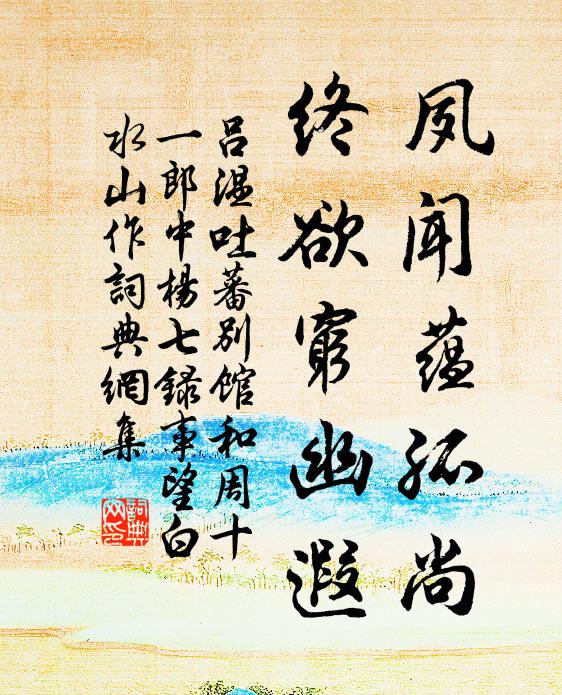 夙闻蕴孤尚
终欲穷幽遐
吕温吐蕃别馆和周十
一郎中楊七録事望白
水山作詞典網集
詞典
网印